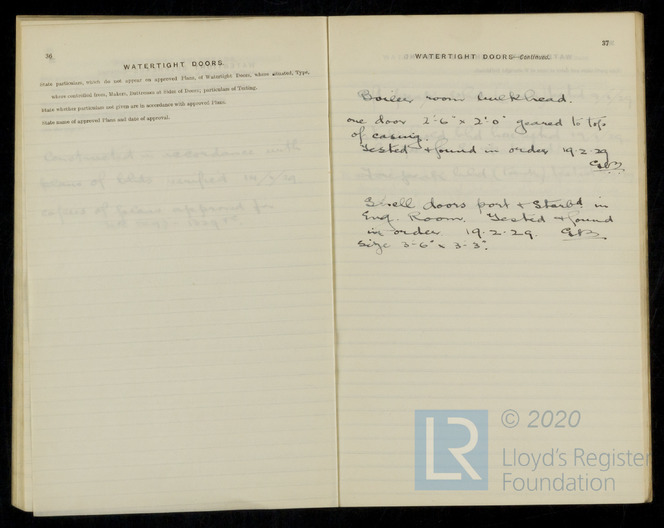 36
WATERTIGHT DOORS
State particulars, which do not appear on approved Plans, of Watertight Doors, where situated, Type,
where controlled from, Makers, Distances at sides of Doors; particulars of Testing.
State whether particulars not given are in accordance with approved Plans.
State name of approved Plans and date of approval.
37
WATERTIGHT DOORS—Continued.
Boiler room bulkhead.
one door 2'-6" x 2'0" geared to top
of casing.
Tested & found in order 19-2-29
Shell doors port & Starbd in
Eng. Room. Tested & found
in order 19-2-29.
Size 3'-6" x 3'-3".
© 2020
LR
Lloyd's Register
Foundation